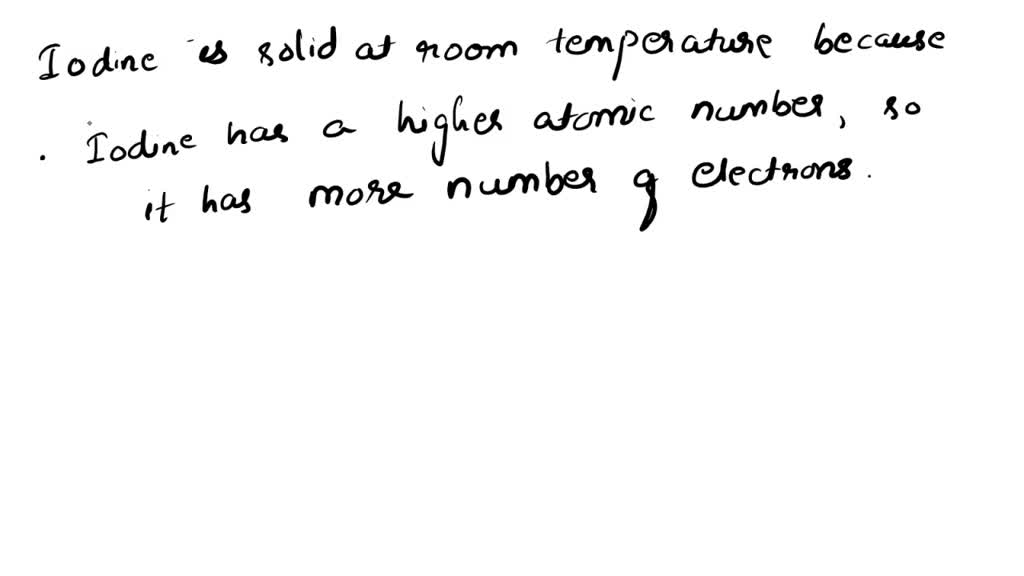 Iodine is solid at room temperature because
. Iodine has a higher atomic number, so
it has more number of electrons.